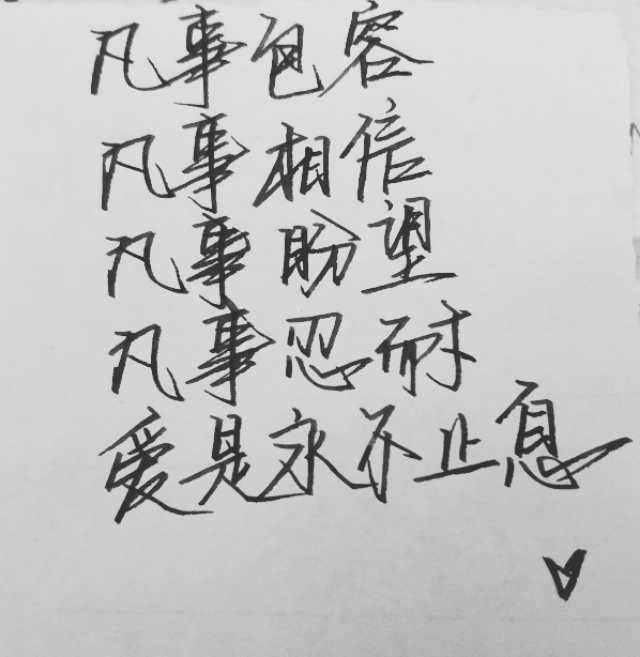 凡事包容
凡事相信
凡事盼望
凡事忍耐
爱是永不止息